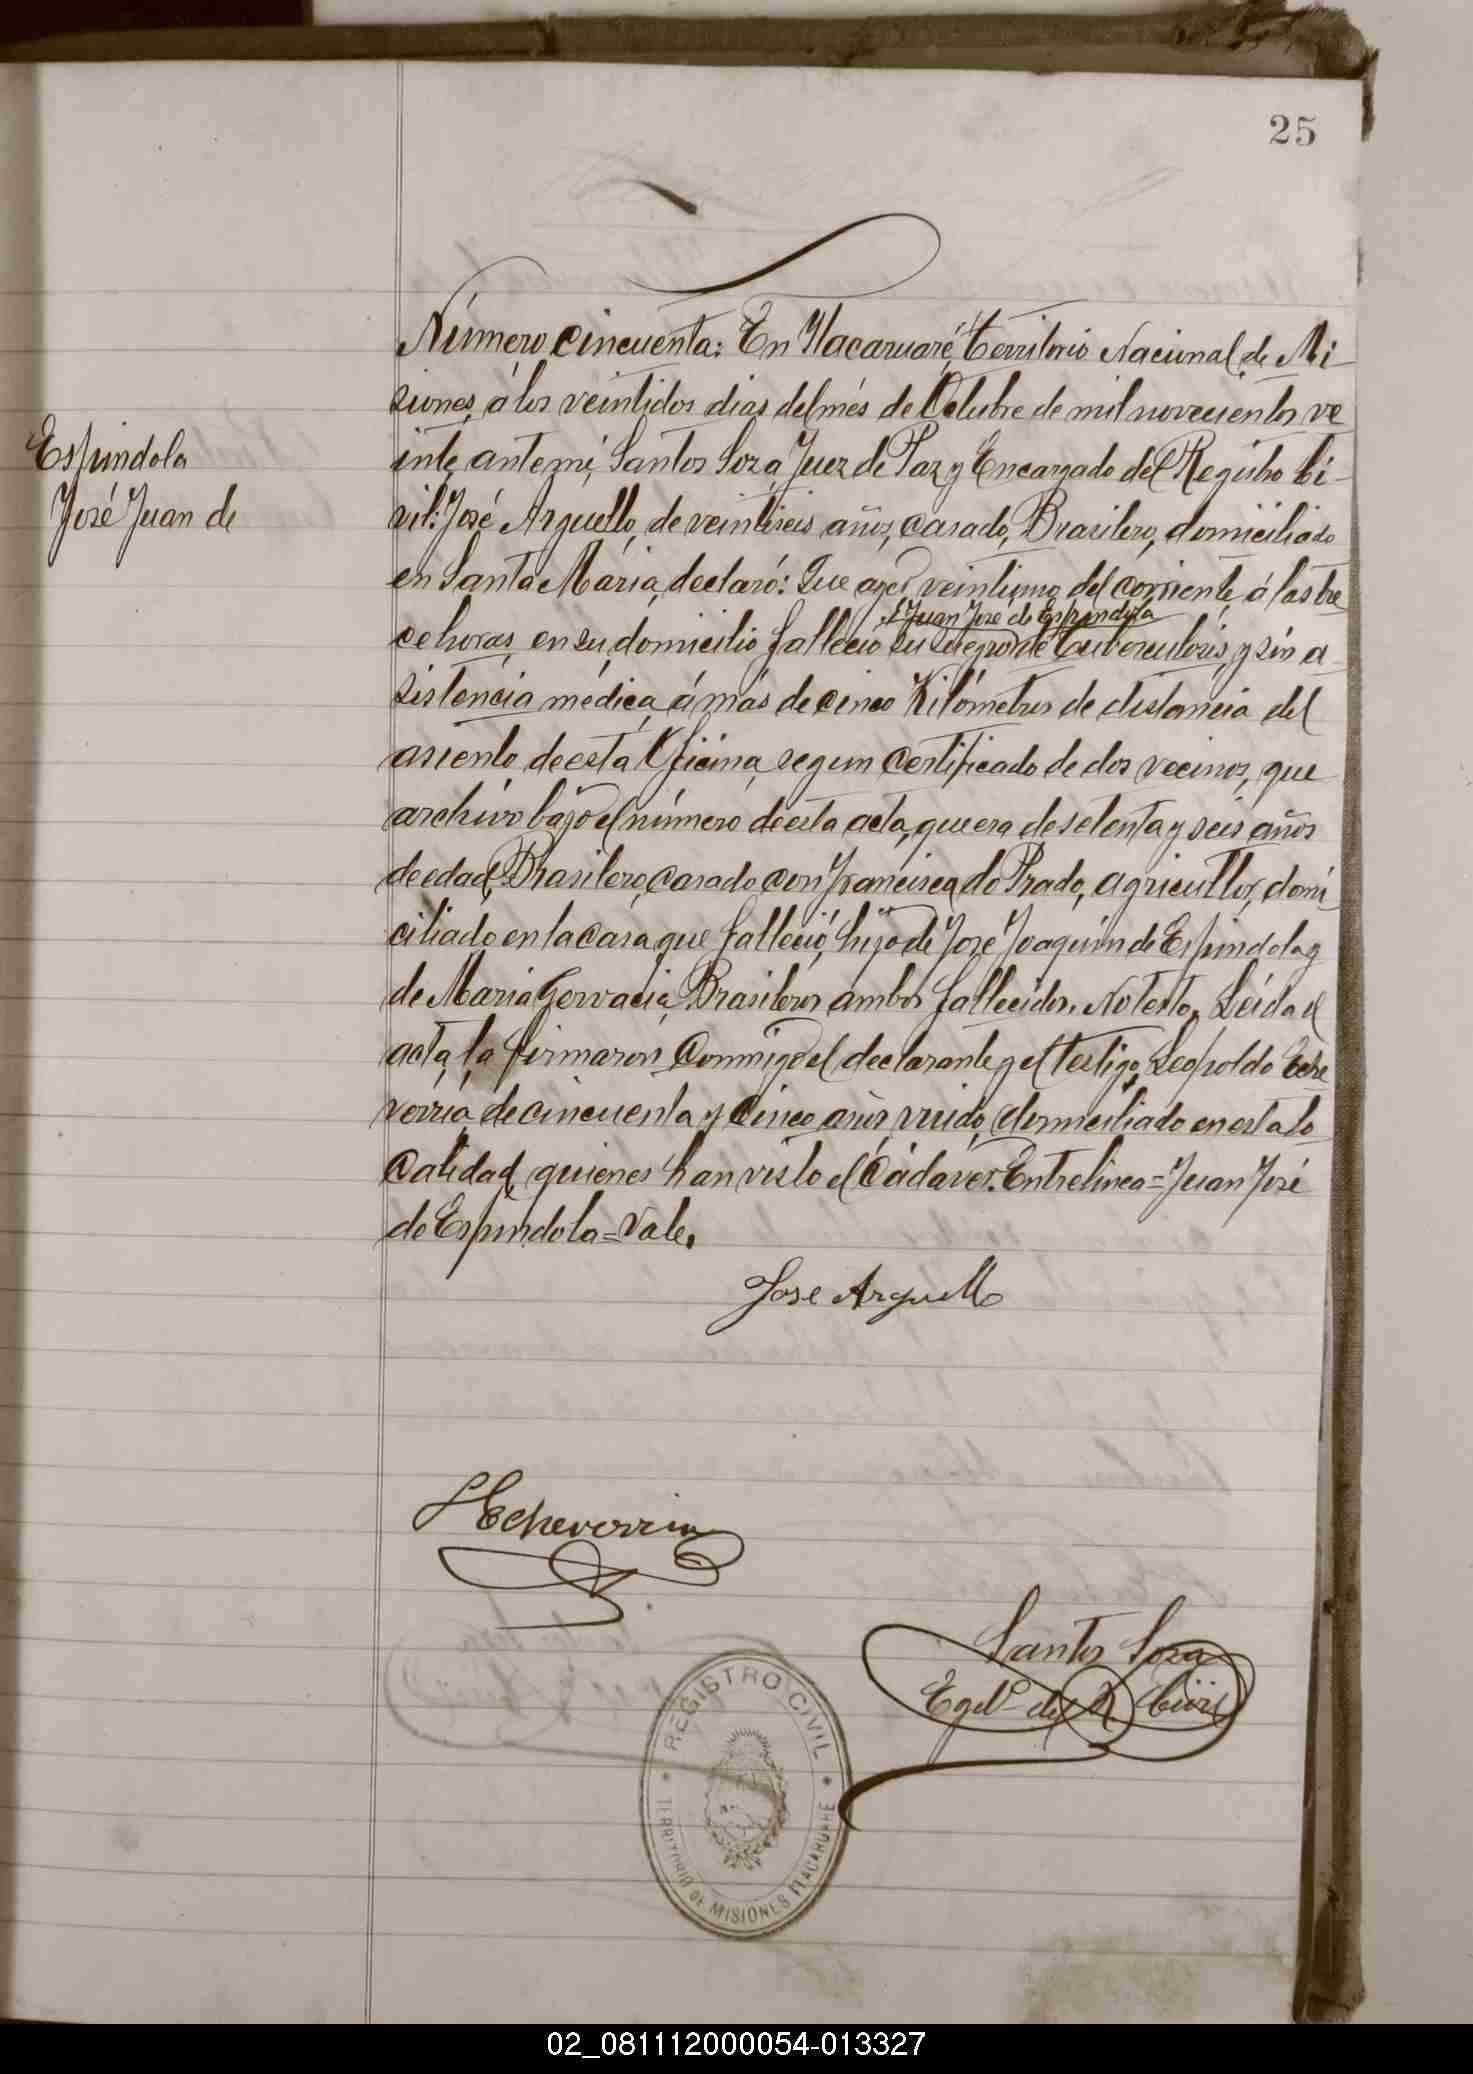 25
Espindola
José Juan de
Número cincuenta: En Itacaruaré, Territorio Nacional de Mi-
siones, á los veintidos dias del més de Octubre de mil novecientos ve
inte, ante mi, Santos Soza, Juez de Paz y Encargado del Registro Ci-
vil: José Arguello, de veintiseis años, casado, Brasilero, domiciliado
en Santa Maria, declaró: Que ayer veintiuno del corriente, á las tre
Juan José de Espindola
ce horas, en su domicilio falleció su suegro de tuberculosis, y sin a-
sistencia médica, á más de cinco Kilómetros de distancia del
asiento de esta Oficina, segun certificado de dos vecinos, que
archivo bajo el número de esta acta, que era de setenta y seis años
de edad, Brasilero, casado con Francisca do Prado, agricultor, domi-
ciliado en la casa que falleció, hijo de José Joaquin de Espindola y
de Maria Gervacia, Brasileros ambos fallecidos. No testó. Leida el
acta, la firmaron conmigo el declarante y el testigo, Leopoldo Eche
verria, de cincuenta y cinco años, viudo, domiciliado en esta lo
calidad, quienes han visto el cadáver. Entrelinea = Juan José
de Espindola = Vale.
José Arguello
L Echeverria
Santos Soza
Egdo. del R. Civil
REGISTRO CIVIL
TERRITORIO DE MISIONES ITACARUARE
02_081112000054-013327